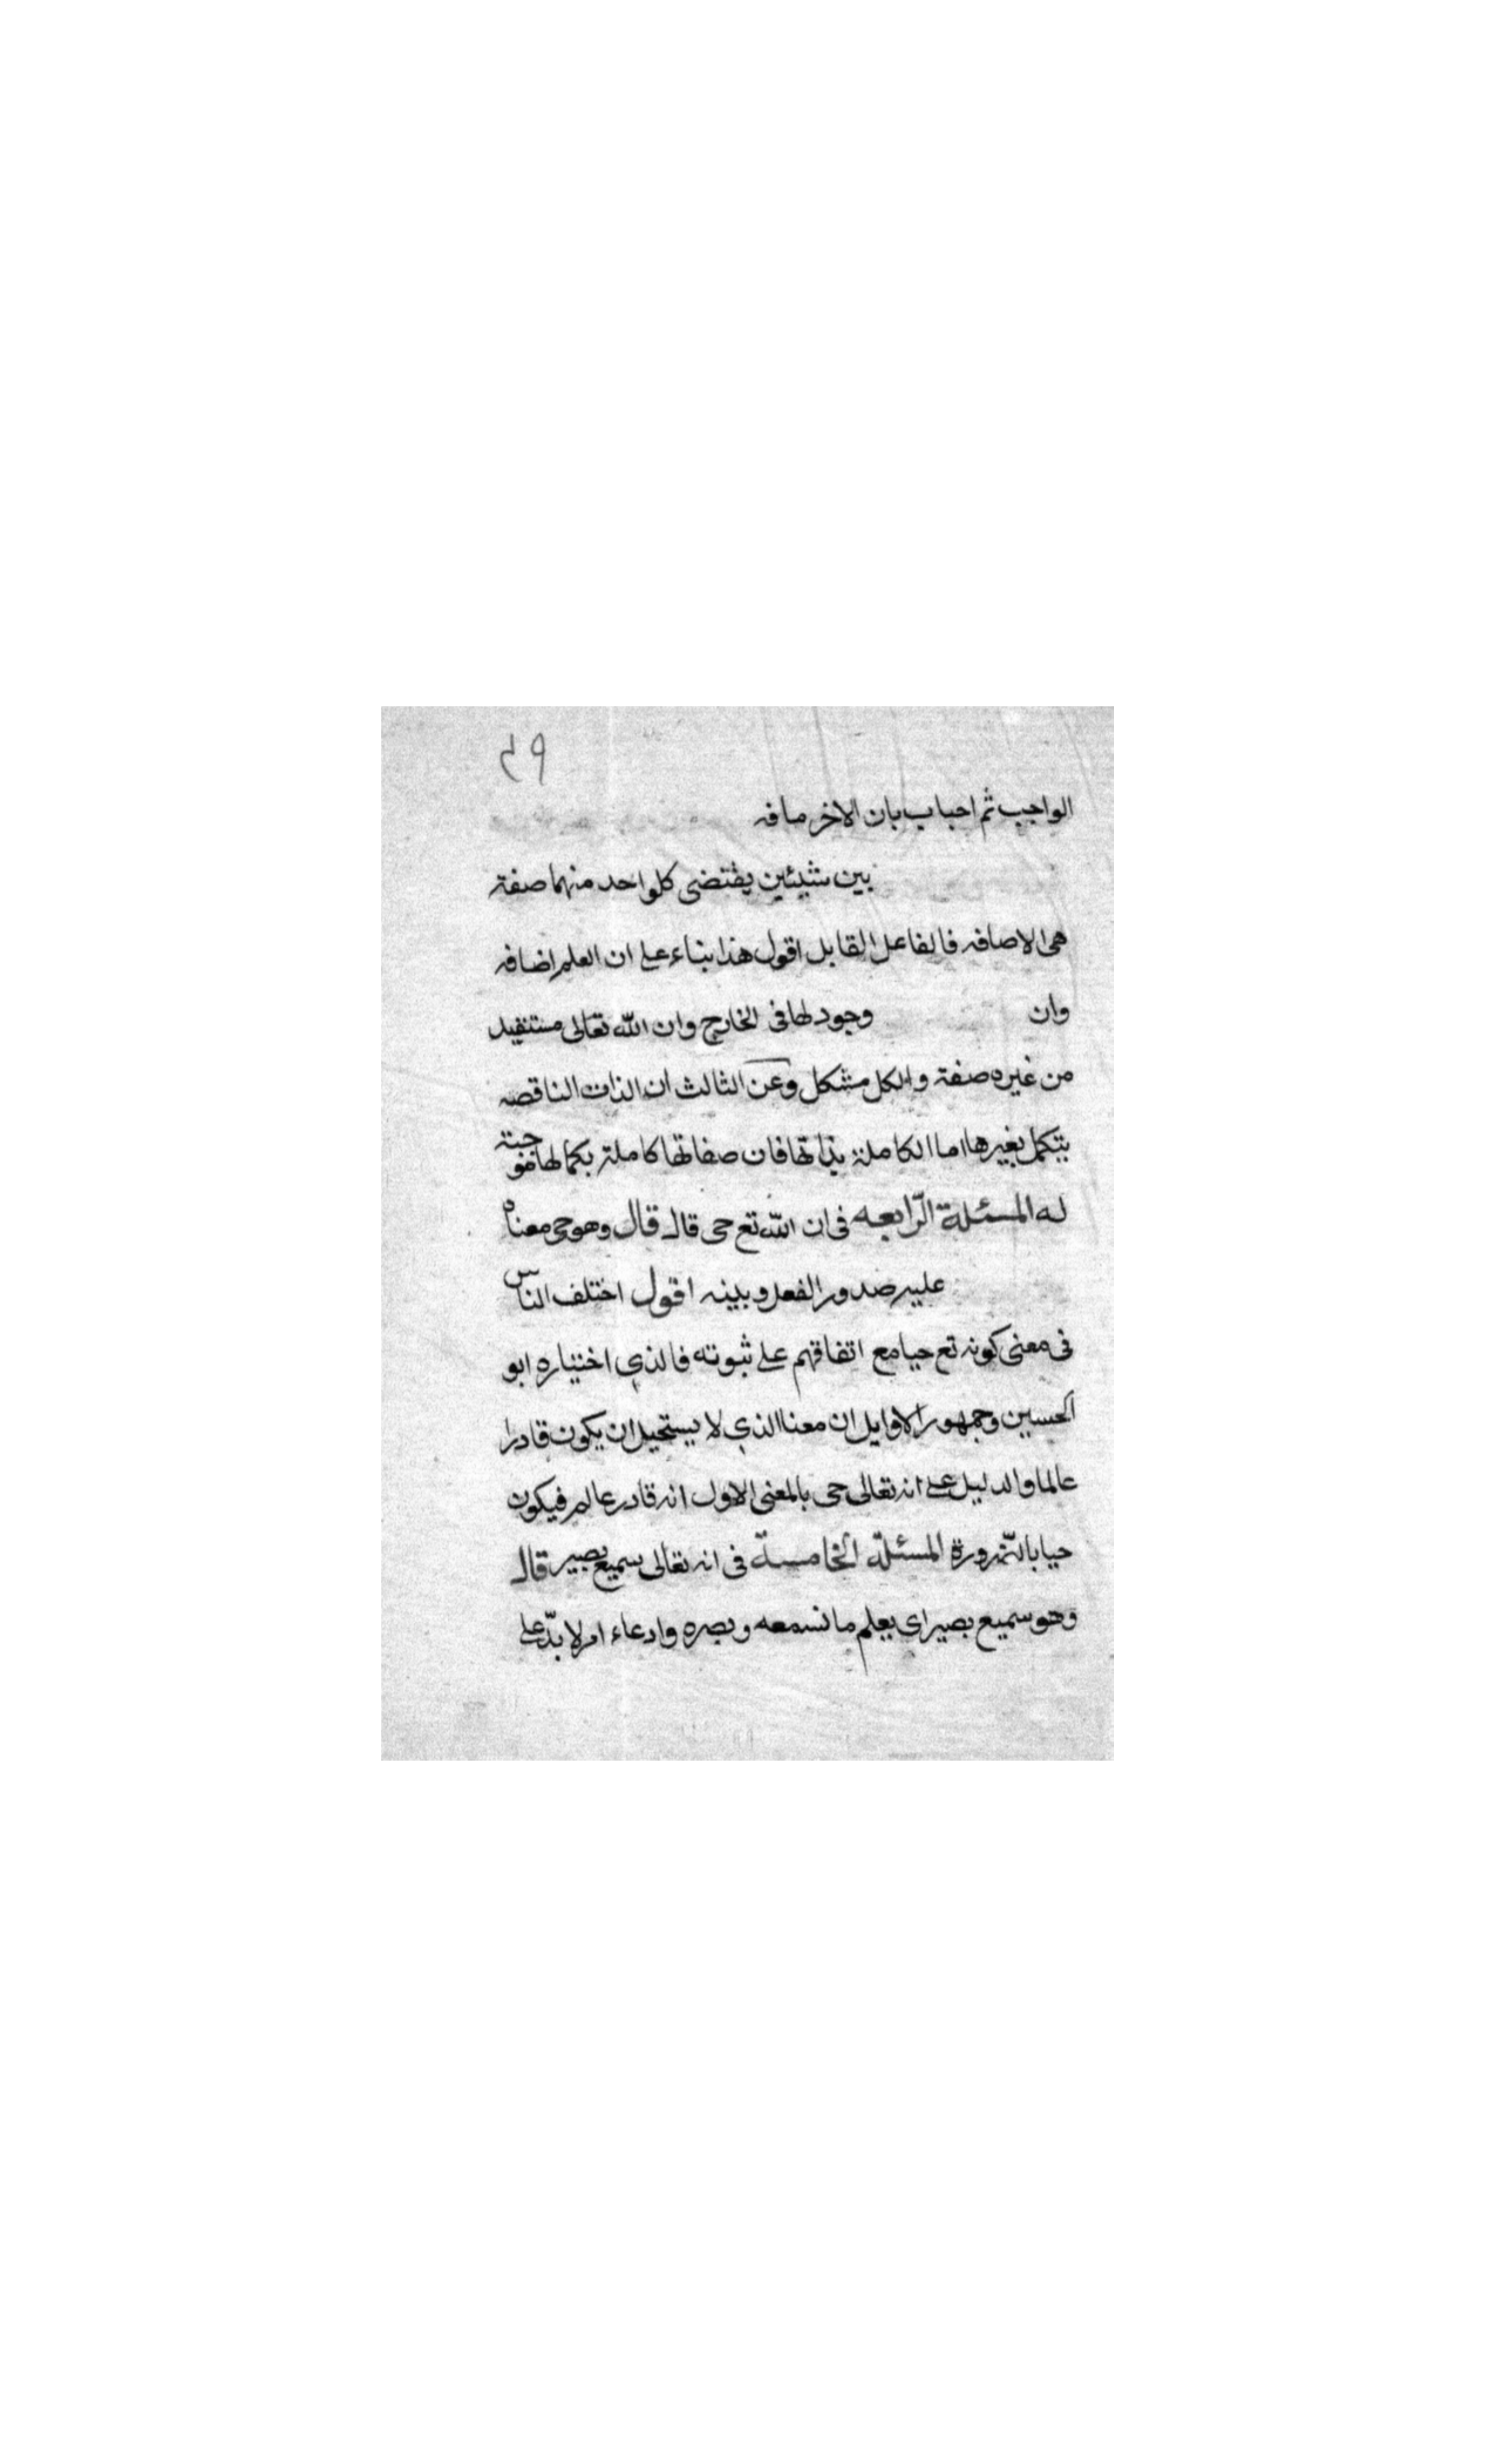 ٤٩
الواجب ثم احباب بان الاخر مافه
بين شيئين يقتضى كلواحد منهما صفة
هى الاصافه فالفاعل القابل اقول هذا بناء على ان العلم اضافه
وان وجود لها فى الخارج وان الله تعالى مستنفيد
من غيره صفة والكل مشكل وعن الثالث ان الذات الناقصه
يتكمل بغيرها اما الكاملة بذاتها فان صفاتها كاملة بكمالها موجبة
له المسئلة الرّابعه فى ان الله تع حى قال قال وهو حى معناه
عليه صدور الفعل وبينه اقول اختلف الناس
فى معنى كونه تع حيا مع اتفاقهم على ثبوته فالذي اختياره ابو
الحسين وجمهور الاوايل ان معنا الذي لا يستحيل ان يكون قادرا
عالما والدليل على انه تعالى حى بالمعنى الاول انه قادر عالم فيكون
حيا بالضرورة المسئلة الخامسة فى انه تعالى سميع بصير قال
وهو سميع بصير اى يعلم ما نسمعه وبصره وادعاء امر لا بدّ على